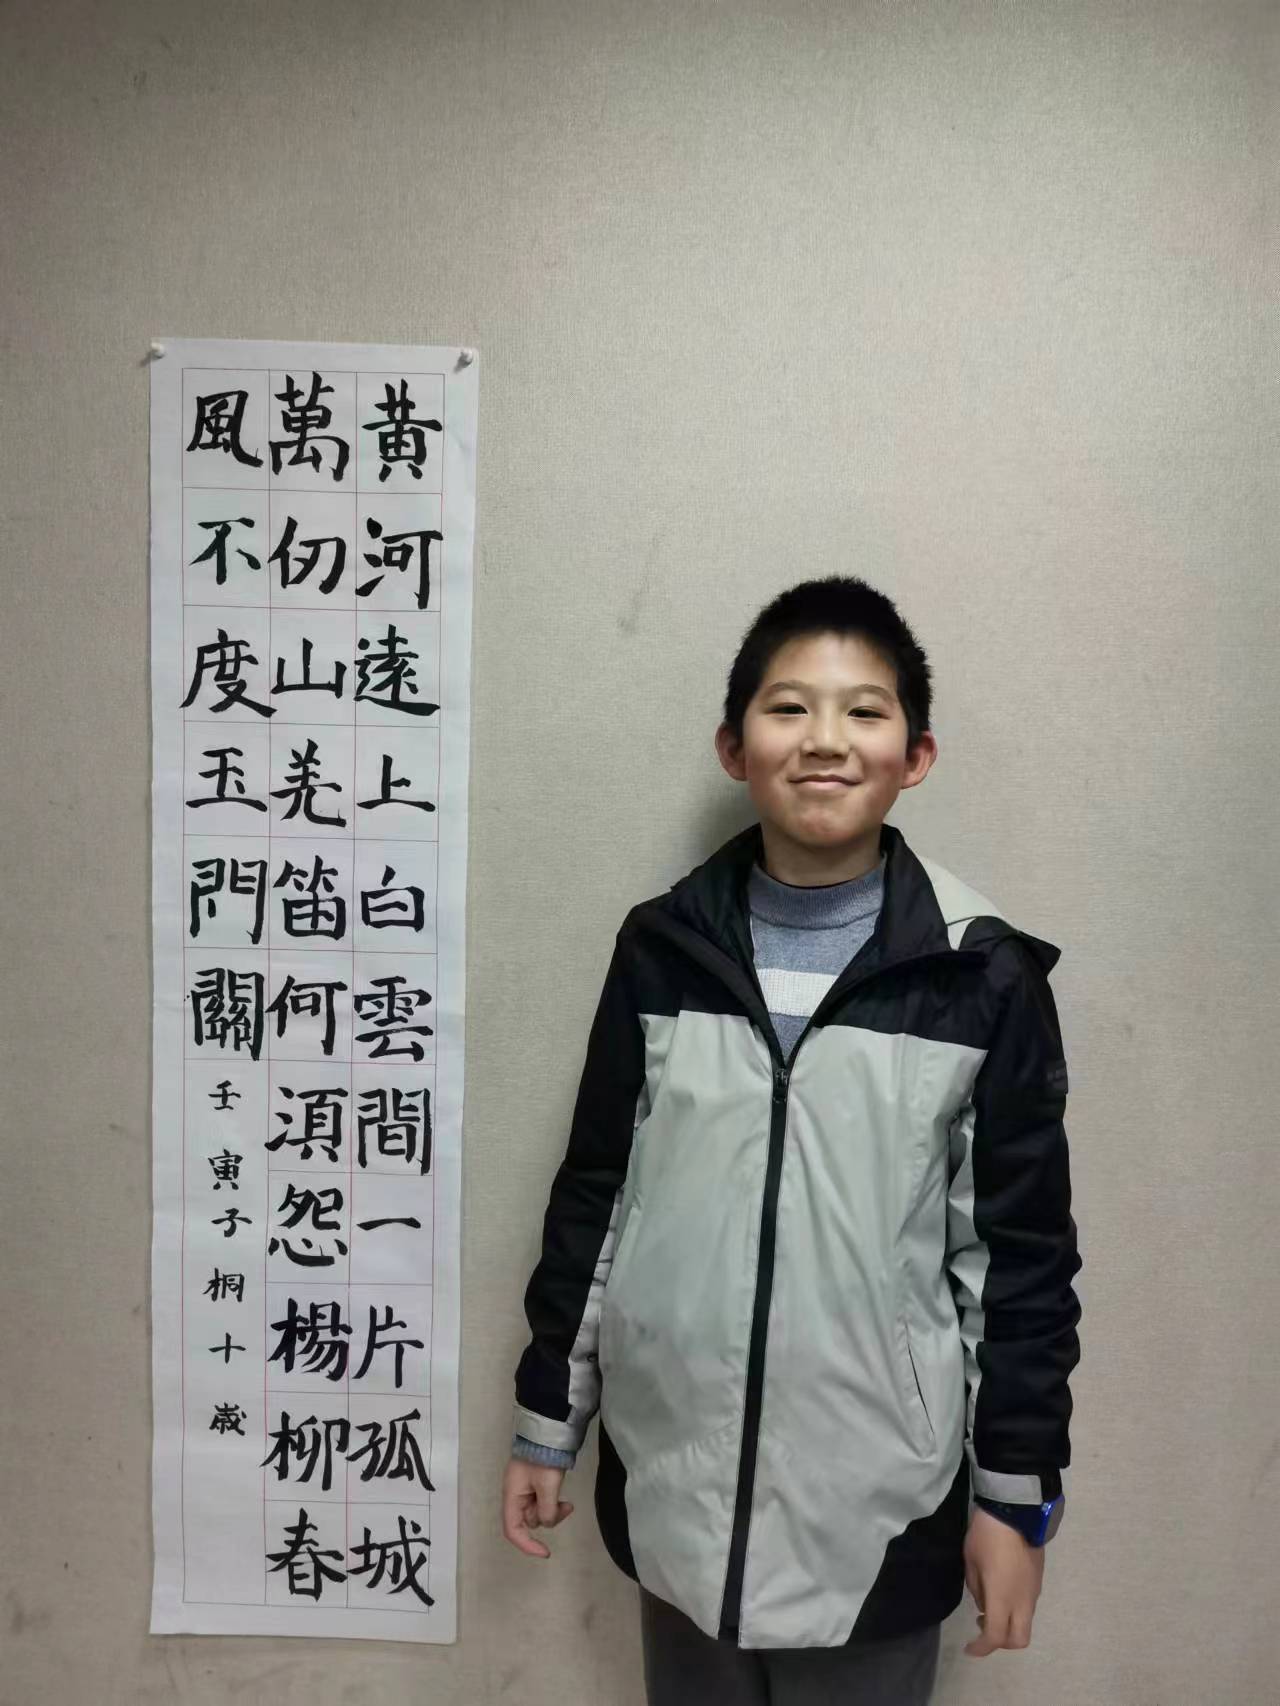 黄河遠上白雲間一片孤城
萬仞山羌笛何須怨楊柳春
風不度玉門關
壬寅子桐十歲